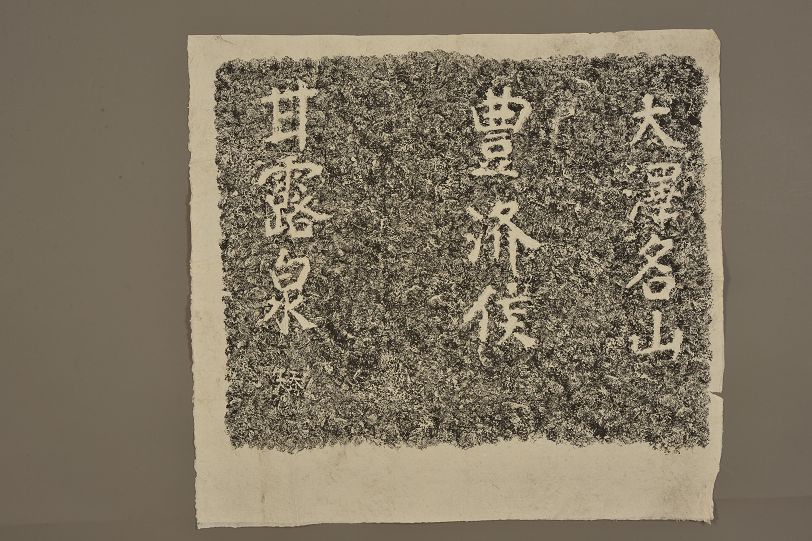 大澤名山
豐济侯
甘露泉